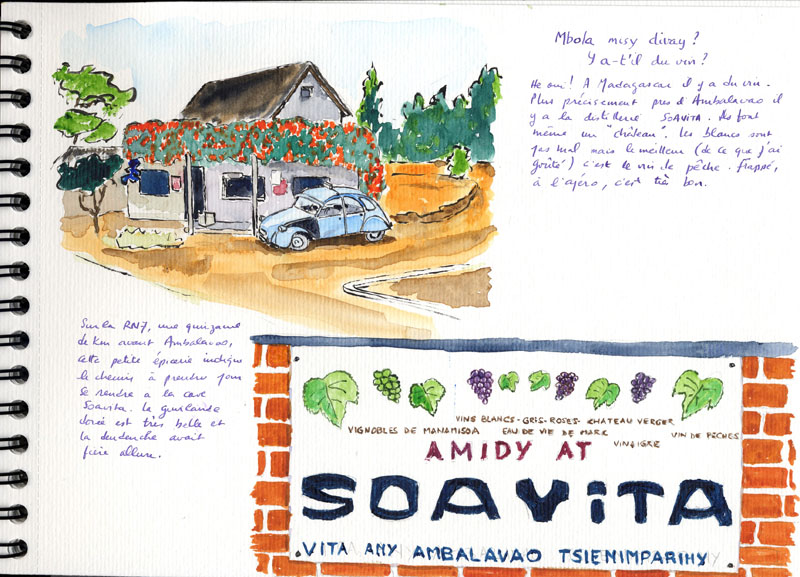 Mbola misy divay ?
Y a-t'il du vin ?
He oui ! A Madagascar il y a du vin.
Plus précisement pres d'Ambalavao il
y a la distillerie SOAVITA. Ils font
même un "château". Les blancs sont
pas mal mais le meilleur (de ce que j'ai
goûté) c'est le vin de pêche. Frappé,
à l'apéro, c'est très bon.
Sur la RN7, une quinzaine
de km avant Ambalavao,
cette petite épicerie indique
le chemin à prendre pour
se rendre a la cave
Soavita. La guirlande
est très belle et
la deudeuche avait
fière allure.
VINS BLANCS - GRIS - ROSES - CHATEAU VERGER
VIGNOBLES DE MANAMISOA EAU DE VIE DE MARK VIN DE PÊCHES
VINAIGRE
AMIDY AT
SOAVITA
VITA ANY AMBALAVAO TSIENIMPARIHY